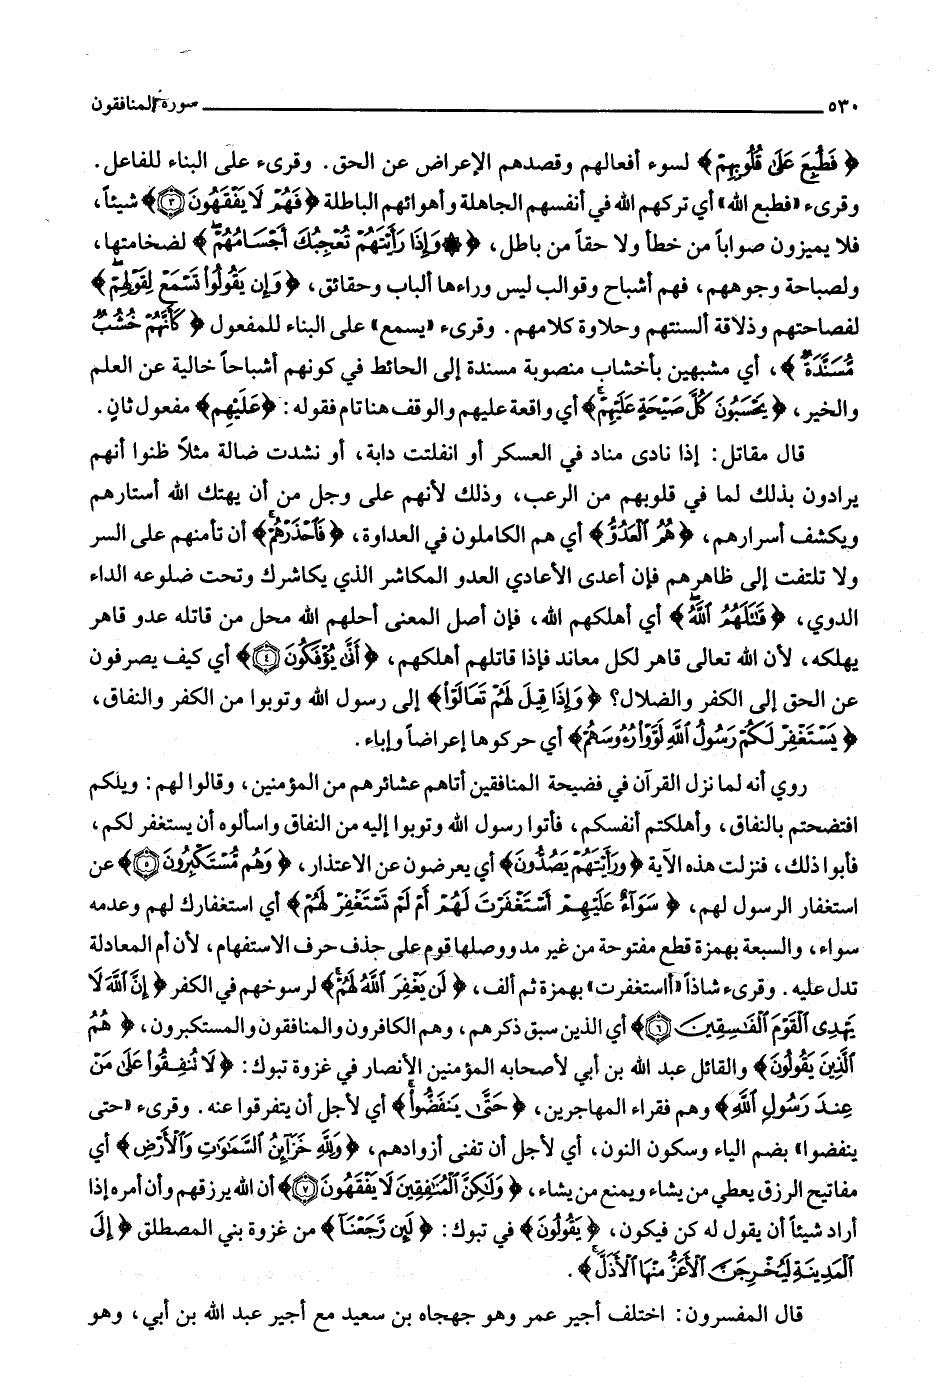 ٥٣٠ سورة المنافقون
﴿ فَطُبِعَ عَلَىٰ قُلُوبِهِمْ ﴾ لسوء أفعالهم وقصدهم الإعراض عن الحق. وقرىء على البناء للفاعل.
وقرىء «فطبع الله» أي تركهم الله في أنفسهم الجاهلة وأهوائهم الباطلة ﴿ فَهُمْ لَا يَفْقَهُونَ ۝٣ ﴾ شيئاً،
فلا يميزون صواباً من خطأ ولا حقاً من باطل، ﴿ ۞ وَإِذَا رَأَيْتَهُمْ تُعْجِبُكَ أَجْسَامُهُمْ ۖ ﴾ لضخامتها،
ولصباحة وجوههم، فهم أشباح وقوالب ليس وراءها ألباب وحقائق، ﴿ وَإِن يَقُولُوا۟ تَسْمَعْ لِقَوْلِهِمْ ۖ ﴾
لفصاحتهم وذلاقة ألسنتهم وحلاوة كلامهم. وقرىء «يسمع» على البناء للمفعول ﴿ كَأَنَّهُمْ خُشُبٌ
مُّسَنَّدَةٌ ۖ ﴾، أي مشبهين بأخشاب منصوبة مسندة إلى الحائط في كونهم أشباحاً خالية عن العلم
والخير، ﴿ يَحْسَبُونَ كُلَّ صَيْحَةٍ عَلَيْهِمْ ۚ ﴾ أي واقعة عليهم والوقف هنا تام فقوله: ﴿عَلَيْهِم﴾ مفعول ثانٍ.
قال مقاتل: إذا نادى مناد في العسكر أو انفلتت دابة، أو نشدت ضالة مثلاً ظنوا أنهم
يرادون بذلك لما في قلوبهم من الرعب، وذلك لأنهم على وجل من أن يهتك الله أستارهم
ويكشف أسرارهم، ﴿ هُمُ ٱلْعَدُوُّ ﴾ أي هم الكاملون في العداوة، ﴿ فَٱحْذَرْهُمْ ۚ ﴾ أن تأمنهم على السر
ولا تلتفت إلى ظاهرهم فإن أعدى الأعادي العدو المكاشر الذي يكاشرك وتحت ضلوعه الداء
الدوي، ﴿ قَٰتَلَهُمُ ٱللَّهُ ۖ ﴾ أي أهلكهم الله، فإن أصل المعنى أحلهم الله محل من قاتله عدو قاهر
يهلكه، لأن الله تعالى قاهر لكل معاند فإذا قاتلهم أهلكهم، ﴿ أَنَّىٰ يُؤْفَكُونَ ۝٤ ﴾ أي كيف يصرفون
عن الحق إلى الكفر والضلال؟ ﴿ وَإِذَا قِيلَ لَهُمْ تَعَالَوْا۟ ﴾ إلى رسول الله وتوبوا من الكفر والنفاق،
﴿ يَسْتَغْفِرْ لَكُمْ رَسُولُ ٱللَّهِ لَوَّوْا۟ رُءُوسَهُمْ ﴾ أي حركوها إعراضاً وإباء.
روي أنه لما نزل القرآن في فضيحة المنافقين أتاهم عشائرهم من المؤمنين، وقالوا لهم: ويلكم
افتضحتم بالنفاق، وأهلكتم أنفسكم، فأتوا رسول الله وتوبوا إليه من النفاق واسألوه أن يستغفر لكم،
فأبوا ذلك، فنزلت هذه الآية ﴿ وَرَأَيْتَهُمْ يَصُدُّونَ ﴾ أي يعرضون عن الاعتذار، ﴿ وَهُم مُّسْتَكْبِرُونَ ۝٥ ﴾ عن
استغفار الرسول لهم، ﴿ سَوَآءٌ عَلَيْهِمْ أَسْتَغْفَرْتَ لَهُمْ أَمْ لَمْ تَسْتَغْفِرْ لَهُمْ ﴾ أي استغفارك لهم وعدمه
سواء، والسبعة بهمزة قطع مفتوحة من غير مد ووصلها قوم على حذف حرف الاستفهام، لأن أم المعادلة
تدل عليه. وقرىء شاذاً «أاستغفرت» بهمزة ثم ألف، ﴿ لَن يَغْفِرَ ٱللَّهُ لَهُمْ ۚ ﴾ لرسوخهم في الكفر ﴿ إِنَّ ٱللَّهَ لَا
يَهْدِى ٱلْقَوْمَ ٱلْفَٰسِقِينَ ۝٦ ﴾ أي الذين سبق ذكرهم، وهم الكافرون والمنافقون والمستكبرون، ﴿ هُمُ
ٱلَّذِينَ يَقُولُونَ ﴾ والقائل عبد الله بن أبي لأصحابه المؤمنين الأنصار في غزوة تبوك: ﴿ لَا تُنفِقُوا۟ عَلَىٰ مَنْ
عِندَ رَسُولِ ٱللَّهِ ﴾ وهم فقراء المهاجرين، ﴿ حَتَّىٰ يَنفَضُّوا۟ ۗ ﴾ أي لأجل أن يتفرقوا عنه. وقرىء «حتى
ينفضوا» بضم الياء وسكون النون، أي لأجل أن تفنى أزوادهم، ﴿ وَلِلَّهِ خَزَآئِنُ ٱلسَّمَٰوَٰتِ وَٱلْأَرْضِ ﴾ أي
مفاتيح الرزق يعطي من يشاء ويمنع من يشاء، ﴿ وَلَٰكِنَّ ٱلْمُنَٰفِقِينَ لَا يَفْقَهُونَ ۝٧ ﴾ أن الله يرزقهم وأن أمره إذا
أراد شيئاً أن يقول له كن فيكون، ﴿ يَقُولُونَ ﴾ في تبوك: ﴿ لَئِن رَّجَعْنَآ ﴾ من غزوة بني المصطلق ﴿ إِلَى
ٱلْمَدِينَةِ لَيُخْرِجَنَّ ٱلْأَعَزُّ مِنْهَا ٱلْأَذَلَّ ۚ ﴾.
قال المفسرون: اختلف أجير عمر وهو جهجاه بن سعيد مع أجير عبد الله بن أبي، وهو